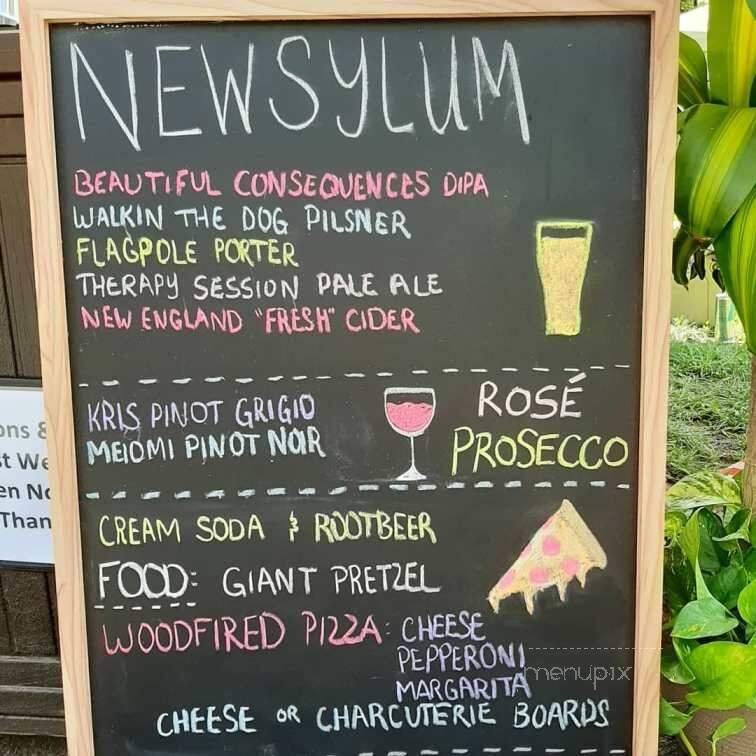 NEWSYLUM
BEAUTIFUL CONSEQUENCES DIPA
WALKIN THE DOG PILSNER
FLAGPOLE PORTER
THERAPY SESSION PALE ALE
NEW ENGLAND "FRESH" CIDER
KRIS PINOT GRIGIO
MEIOMI PINOT NOIR
ROSÉ
PROSECCO
CREAM SODA & ROOTBEER
FOOD: GIANT PRETZEL
WOODFIRED PIZZA: CHEESE
PEPPERONI
MARGARITA
CHEESE OR CHARCUTERIE BOARDS
menupix
ons &
st We
en No
Than